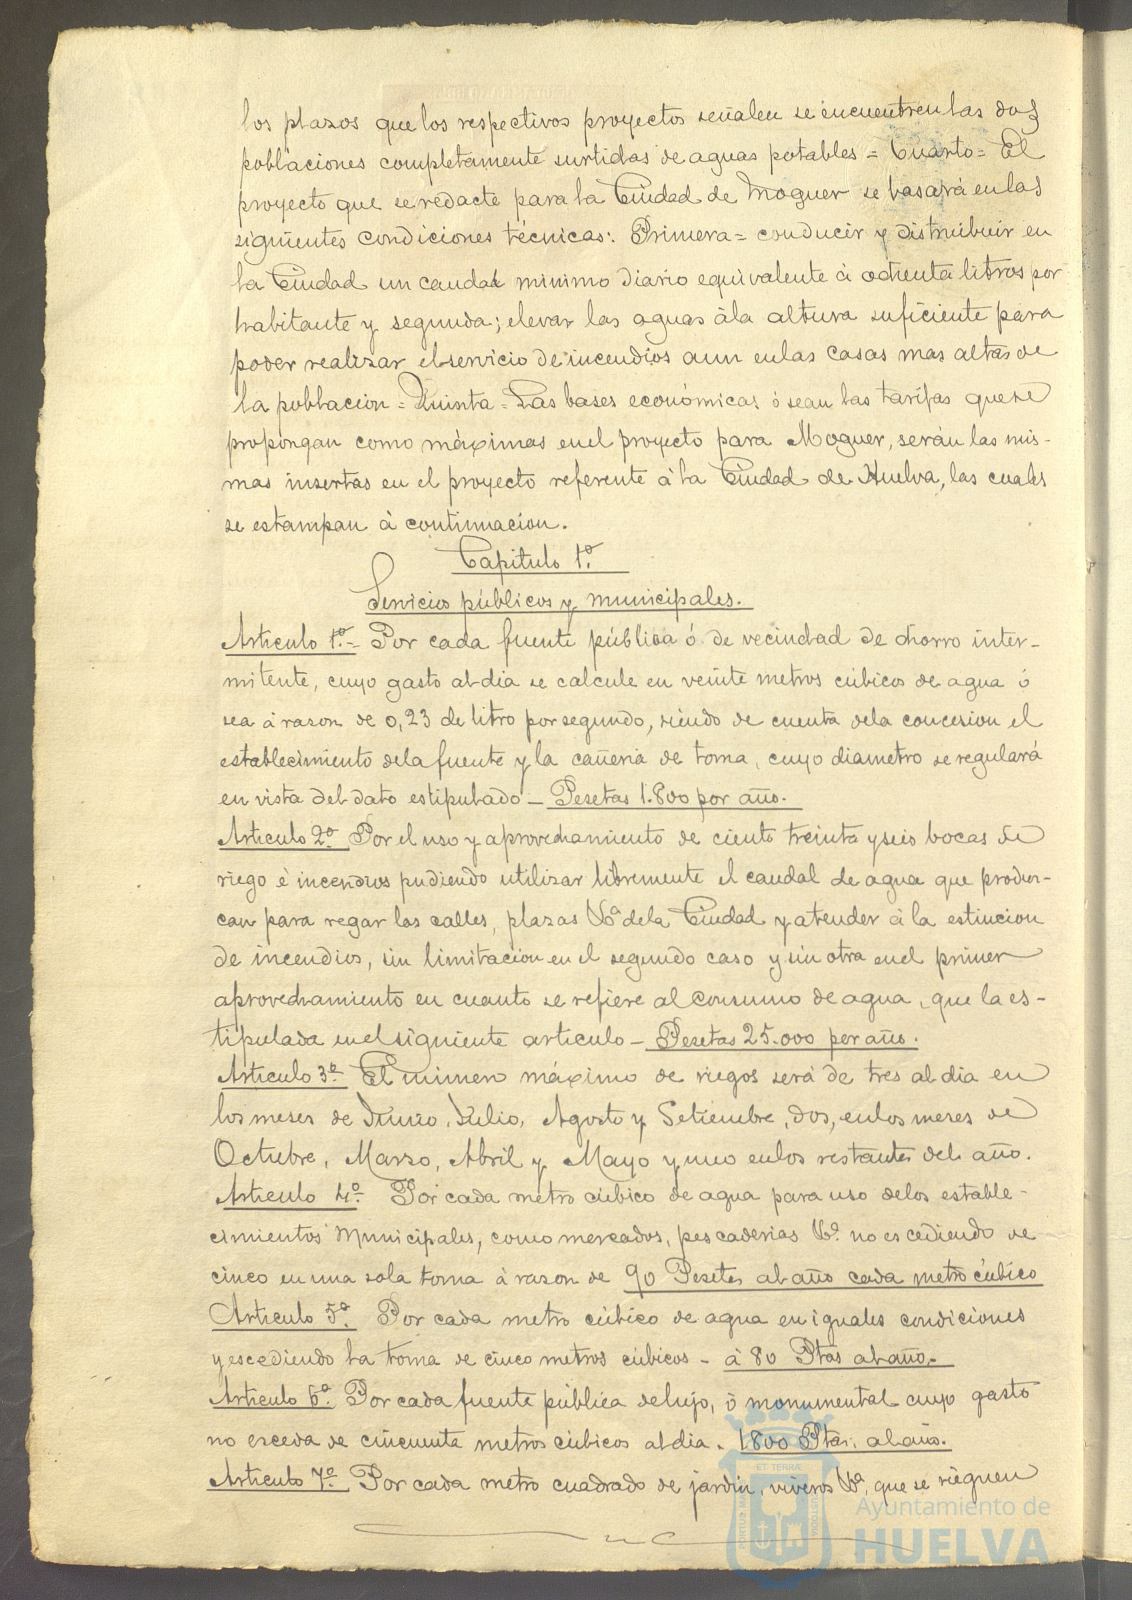 los plazos que los respectivos proyectos señalen se encuentren las dos
poblaciones completamente surtidas de aguas potables = Cuarto = El
proyecto que se redacte para la Ciudad de Moguer se basará en las
siguientes condiciones técnicas: Primera = conducir y distribuir en
la Ciudad un caudal minimo diario equivalente á ochenta litros por
habitante y segunda; elevar las aguas á la altura suficiente para
poder realizar el servicio de incendios aun en las casas mas altas de
la poblacion = Quinta = Las bases económicas ó sean las tarifas que se
propongan como máximas en el proyecto para Moguer, serán las mis-
mas insertas en el proyecto referente á la Ciudad de Huelva, las cuales
se estampan á continuacion.
Capitulo 1º.
Servicios públicos y municipales.
Articulo 1º.- Por cada fuente pública ó de vecindad de chorro inter-
mitente, cuyo gasto al dia se calcule en veinte metros cúbicos de agua ó
sea á razon de 0,23 de litro por segundo, siendo de cuenta de la concesion el
establecimiento de la fuente y la cañeria de toma, cuyo diametro se regulará
en vista del dato estipulado - Pesetas 1.800 por año.
Articulo 2º. Por el uso y aprovechamiento de ciento treinta y seis bocas de
riego é incendios pudiendo utilizar libremente el caudal de agua que produz-
can para regar las calles, plazas &ª de la Ciudad y atender á la estincion
de incendios, sin limitacion en el segundo caso y sin otra en el primer
aprovechamiento en cuanto se refiere al consumo de agua, que la es-
tipulada en el siguiente articulo - Pesetas 25.000 por año.
Articulo 3º. El número máximo de riegos será de tres al dia en
los meses de Junio, Julio, Agosto y Setiembre, dos, en los meses de
Octubre, Marzo, Abril y Mayo y uno en los restantes del año.
Articulo 4º. Por cada metro cúbico de agua para uso de los estable-
cimientos Municipales, como mercados, pescaderias &ª. no escediendo de
cinco en una sola toma á razon de 90 Pesetas al año cada metro cúbico
Articulo 5º. Por cada metro cúbico de agua en iguales condiciones
y escediendo la toma de cinco metros cúbicos - á 80 Ptas al año.-
Articulo 6º. Por cada fuente pública de lujo, ó monumental cuyo gasto
no esceda de cincuenta metros cúbicos al dia. 1800 Ptas. al año.
Articulo 7º. Por cada metro cuadrado de jardin, viveros &ª, que se rieguen
Ayuntamiento de
HUELVA